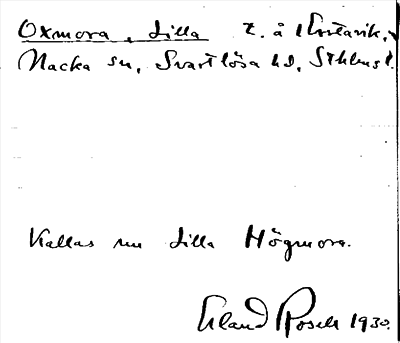 Oxmora, Lilla t. å Korsvik,
Nacka sn, Svartlösa hd, Sthlms l.
Kallas nu Lilla Högmora.
Erland Rosell 1930.